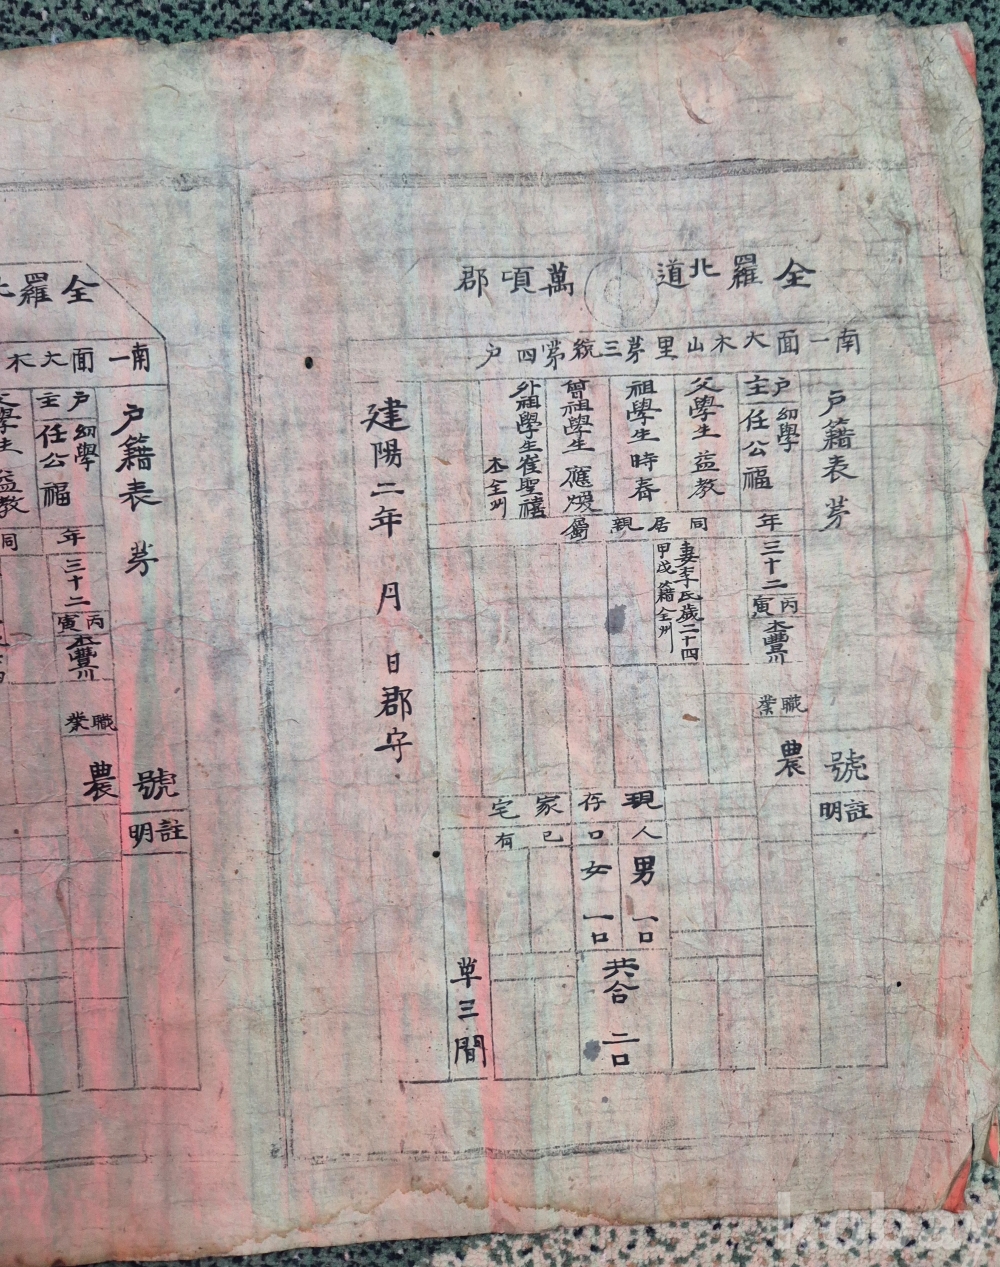 全羅北道 萬頃郡
南一面大木山里第三統第四戶
戶籍表 第 號
註明
戶主 幼學 任公福
年 三十二 丙寅 本豐川
職業 農
父學生 益教
祖學生 時春
曾祖學生 應煥
外祖學生崔聖禧
本全州
同居親屬
妻李氏歲二十四
甲戌 籍全州
現存
人口
男 一口
女 一口
共合 二口
家宅
己有
草三間
建陽二年 月 日郡守
全羅北
南一面大木
戶籍表 第 號
註明
戶主 幼學 任公福
年 三十二 丙寅 本豐川
職業 農
父學生 益教
同